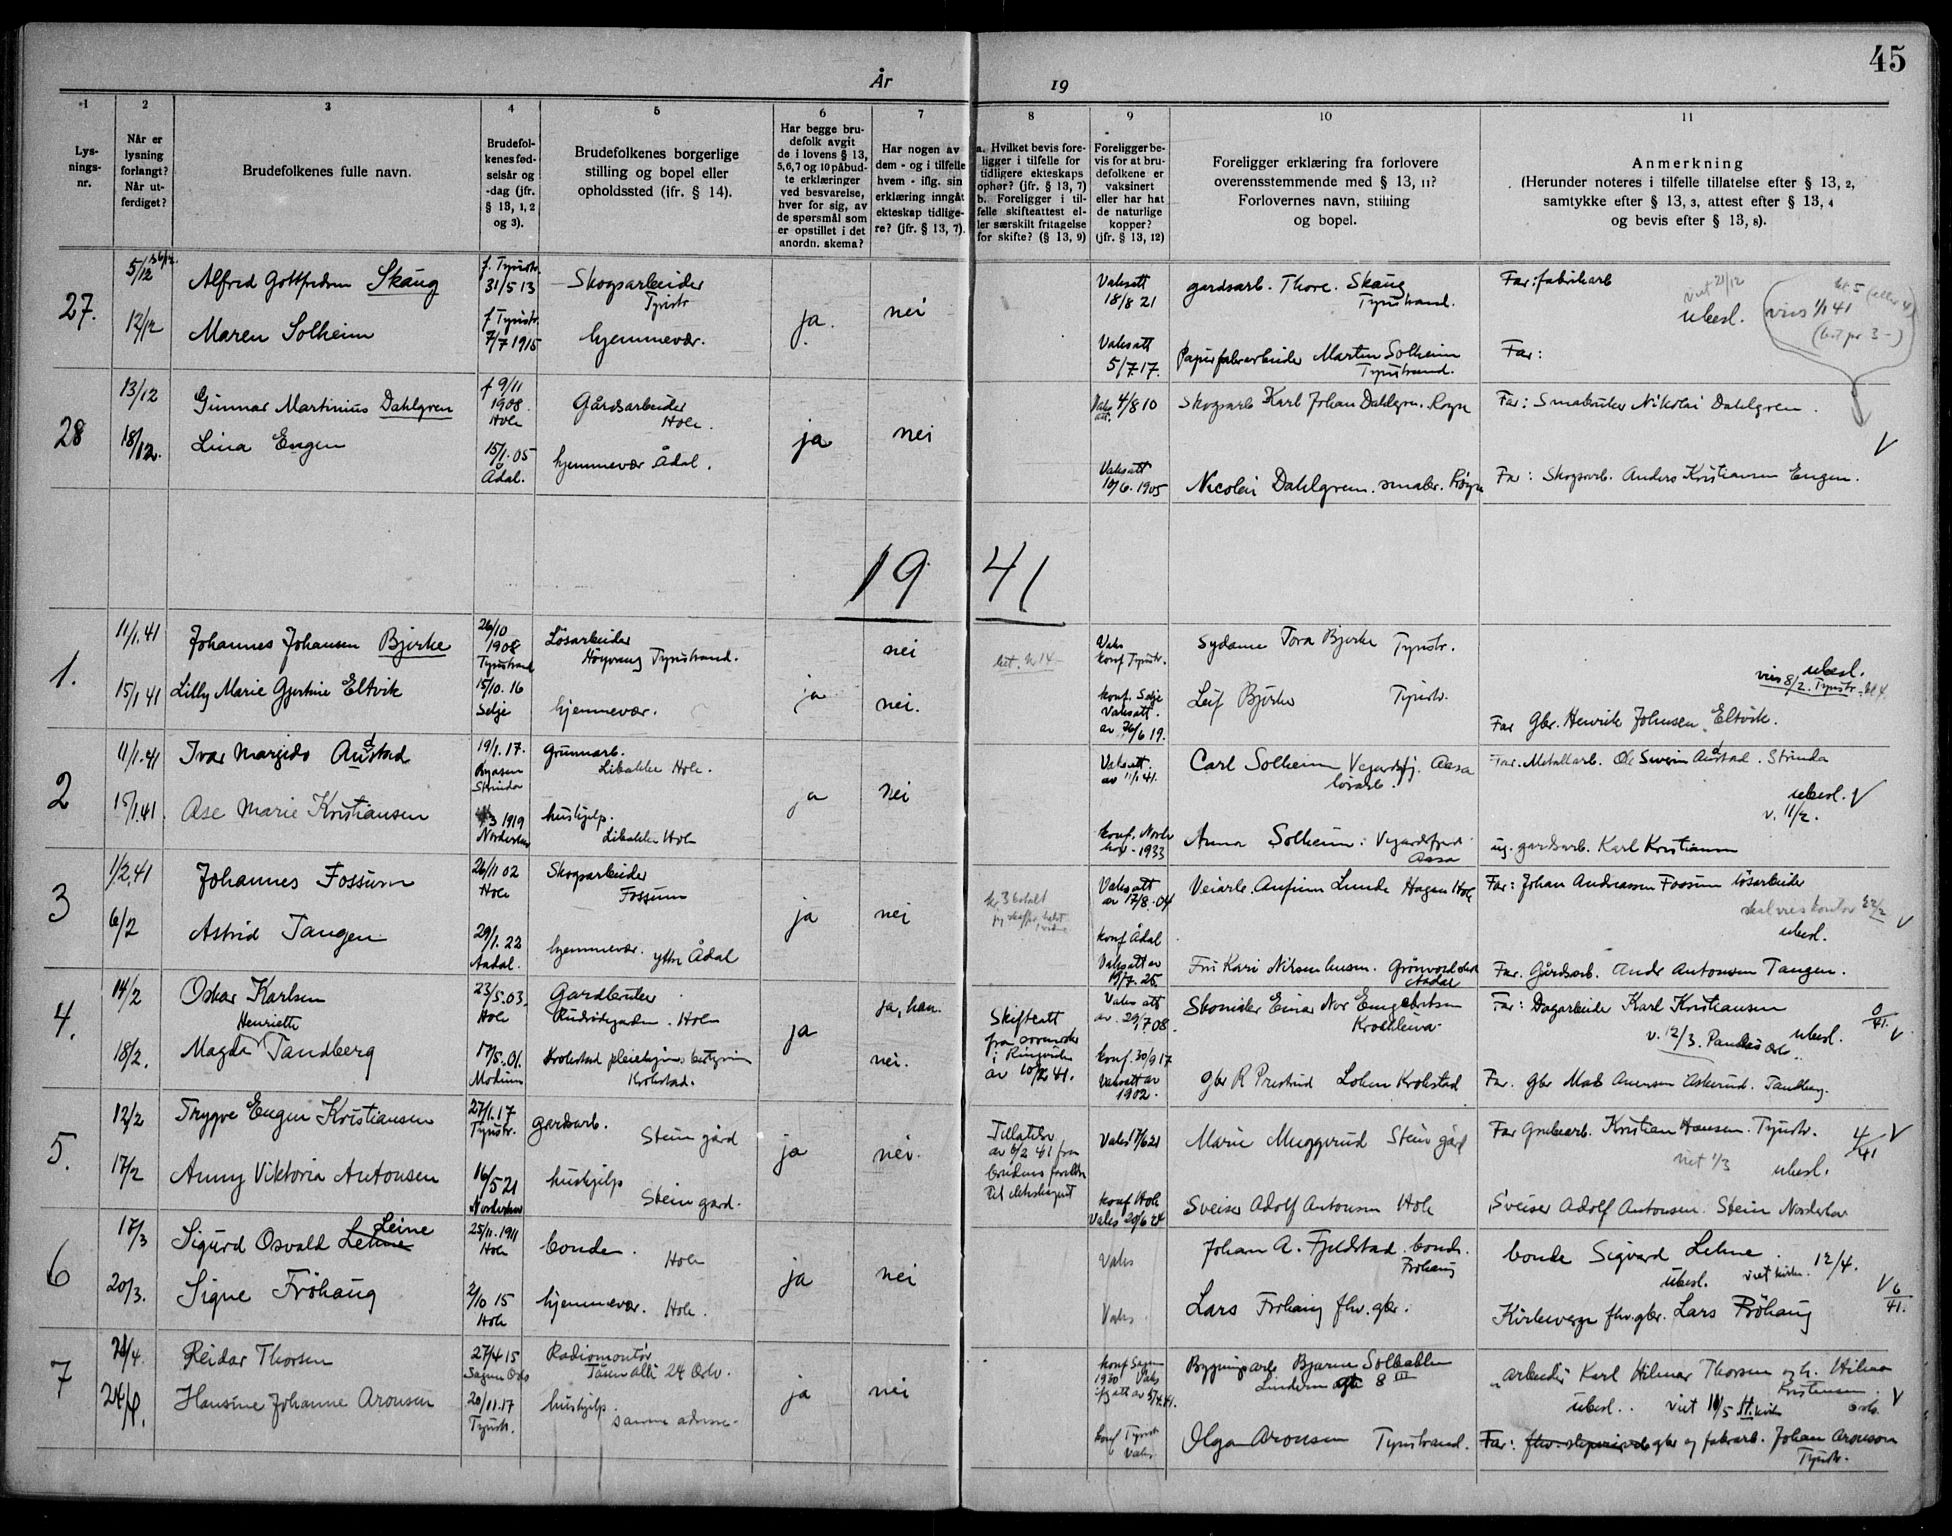 45
År
19
1
2
3
4
5
6
7
8
9
10
11
Lys-
nings-
nr.
Når er
lysning
forlangt?
Når ut-
ferdiget?
Brudefolkenes fulle navn.
Brudefol-
kenes fød-
selsår og
-dag (jfr.
§ 13, 1, 2
og 3).
Brudefolkenes borgerlige
stilling og bopel eller
opholdssted (ifr. § 14).
Har begge bru-
defolk avgit
de i lovens § 13,
5,6,7 og 10 påbud-
te erklæringer
ved besvarelse,
hver for sig, av
de spørsmål som
er opstillet i det
anordn. skema?
Har nogen av
dem - og i tilfelle
hvem - iflg. sin
erklæring inngåt
ekteskap tidlige-
re? (jfr. § 13, 7).
a. Hvilket bevis fore-
ligger i tilfelle for
tidligere ekteskaps
ophør? (jfr. § 13, 7)
b. Foreligger i til-
felle skifteattest el-
ler særskilt fritagelse
for skifte? (§ 13, 9)
Foreligger be-
vis for at bru-
defolkene er
vaksinert
eller har hat
de naturlige
kopper?
(jfr. § 13, 12)
Foreligger erklæring fra forlovere
overensstemmende med § 13, 11?
Forlovernes navn, stilling
og bopel.
Anmerkning
(Herunder noteres i tilfelle tillatelse efter § 13, 2,
samtykke efter § 13, 3, attest efter § 13, 4
og bevis efter § 13, 8).
27.
5/12
12/12
Alfred Gottfredsen Skaug
Maren Solheim
f. Tyristr.
31/5 13
f Tyristr.
7/7 1915
Skogsarbeider
Tyristr
hjemmevær.
ja.
nei
Vaksatt
18/8 21
Vaksatt
5/7.17.
gardsarb. Thore. Skaug
Tyristrand.
Papirfabrarbeider Martin Solheim
Tyristrand.
Far: fabrikarb
viet 21/12
ubesl.
vies 1/1 41
Far:
28
13/12
18/12.
Gunnar Martinius Dahlgren
Lina Engen
f 9/11
1908.
Hole
15/1.05
Ådal.
Gårdsarbeider
Hole.
hjemmevær Ådal.
ja
nei
Vaks att. 4/8 10
Vaksatt
10/6.1905
Skogsarb Karl Johan Dahlgren.
Nicolai Dahlgren. småbr.
Far: Småbruker Nikolai Dahlgren.
Far: Skogsarb. Anders Kristiansen Engen.
V
19 41
1.
11/1.41
15/1 41
Johannes Johansen Bjerke
Lilly Marie Gjertine Eltvik
26/10
1908
Tyristrand
15/10.16
Selje
Løsarbeider
Høyvang Tyristrand.
hjemmevær.
ja
nei
nei.
Vaks
konf Tyristr.
konf. Selje
Vaksatt.
av 26/6 19.
Sydame Tora Bjerke Tyristr.
Leif Bjerke Tyristr.
ubesl.
vies 8/2. Tyristr. kl 4.
Far Gbr. Henrik Johnsen Eltvik.
2
11/1.41
15/1.41.
Ivar Margido Austad
Åse Marie Kristiansen
19/1.17.
Byåsen
Strinda
3 1919
Norderhov
Grunnarb.
Libakke Hole.
hushjelp.
Libakke Hole
ja
nei
Vaksatt.
av 11/1 41.
konf. Norderhov - 1933
Carl Solheim Vegardsfj. Aasa
løsarb.
Anna Solheim: Vegardsfjerd.
Aasa
Far. Metallarb. Ole Severin Austad. Strinda
ubesl. V
v. 11/2.
ug. gardsarb. Karl Kristiansen
3
1/2.41
6/2
Johannes Fossum
Astrid Tangen
26/11 02
Hole
29/1.22
Aadal.
Skogsarbeider
Fossum
hjemmevær. ytre Ådal
ja
nei
kr. 3 betalt
Vaksatt
av 17/8.04
konf Ådal
Vaksatt av
19/7.25.
Veiarb. Anfinn Lunde Hagen Hole
Fru Kari Nilsenhusen.
Aadal
Far: Johan Andreassen Fossum løsarbeider
skal vies kontor 22/2
ubesl.
V
Far. Gårdsarb. Andr Antonsen Tangen.
4.
14/2
18/2.
Oskar Karlsen
Henriette
Magda Tandberg
23/5.03.
Hole
17/5.01.
Modum
Gardbruker
Hole
Krokstad pleiehjems bestyrerin
Krokstad.
ja
ja, han.
nei.
Skifteatt
fra sorenskr
i Ringerike
av 10/2 41.
Vaks att
av. 29/7 08.
konf. 30/9 17
Vaksatt av
1902.
Skomaker Einar Engebretsen
Krokkleiva
gbr R Prestrud Lohen Krokstad
Far: Dagarbeider Karl Kristiansen
v. 12/3.
ubesl.
0/41.
V
Far. gbr Mads Amersen Askerud. Tandberg.
5.
12/2
17/2
Trygve Eugen Kristiansen
Anny Viktoria Antonsen
27/1.17
Tyristr.
16/5 21
Norderhov
gardsarb.
Stein gård
hushjelp
Stein gard.
ja
nei.
Tillatelse
av 6/2 41 fra
brudens foreldre
til ekteskapet
Vaks 17/6 21
konf Hole
Vaks 20/6 24
Marie Muggerud Stein gård
Sveiser Adolf Antonsen Hole
Far Grubearb. Kristian Hansen. Tyristr.
viet 1/3
ubesl.
4/41
V
Sveiser Adolf Antonsen. Stein Norderhov
6
17/3
20/3.
Leine
Sigurd Osvald Lehne
Signe Frøhaug
25/11.1911
Hole
2/10 15
Hole
bonde.
Hole
hjemmevær. Hole.
ja
nei
Vaks
Vaks
Johan A. Fjeldstad. bonde.
Frøhaug
Lars Frøhaug fhv. gbr.
bonde Sigvard Lehne.
ubesl. viet kirken. 12/4.
V 6/41.
Kirkeverge fhv. gbr. Lars Frøhaug
7
24/4.
Reidar Thorsen
Hansine Johanne Aronsen
27/4 15
Sagene Oslo
20/11.17
Tyristr.
Radiomontør
Tåsen allé 24 Oslo.
hushjelp.
samme adresse.
ja
nei
konf Sagene
1930 Vaks
iflg att av 5/4 41.
konf Tyristr
Vaks.
Bygningsarb Bjarne Solbakken
8 III
Olga Aronsen Tyristrand.
arbeider Karl Hilmar Thorsen og h. Hilma
Kristiansen.
Oslo.
ubesl.. viet 11/5
V
Far: gbr og fabrarb. Johan Aronson
Tyristr.